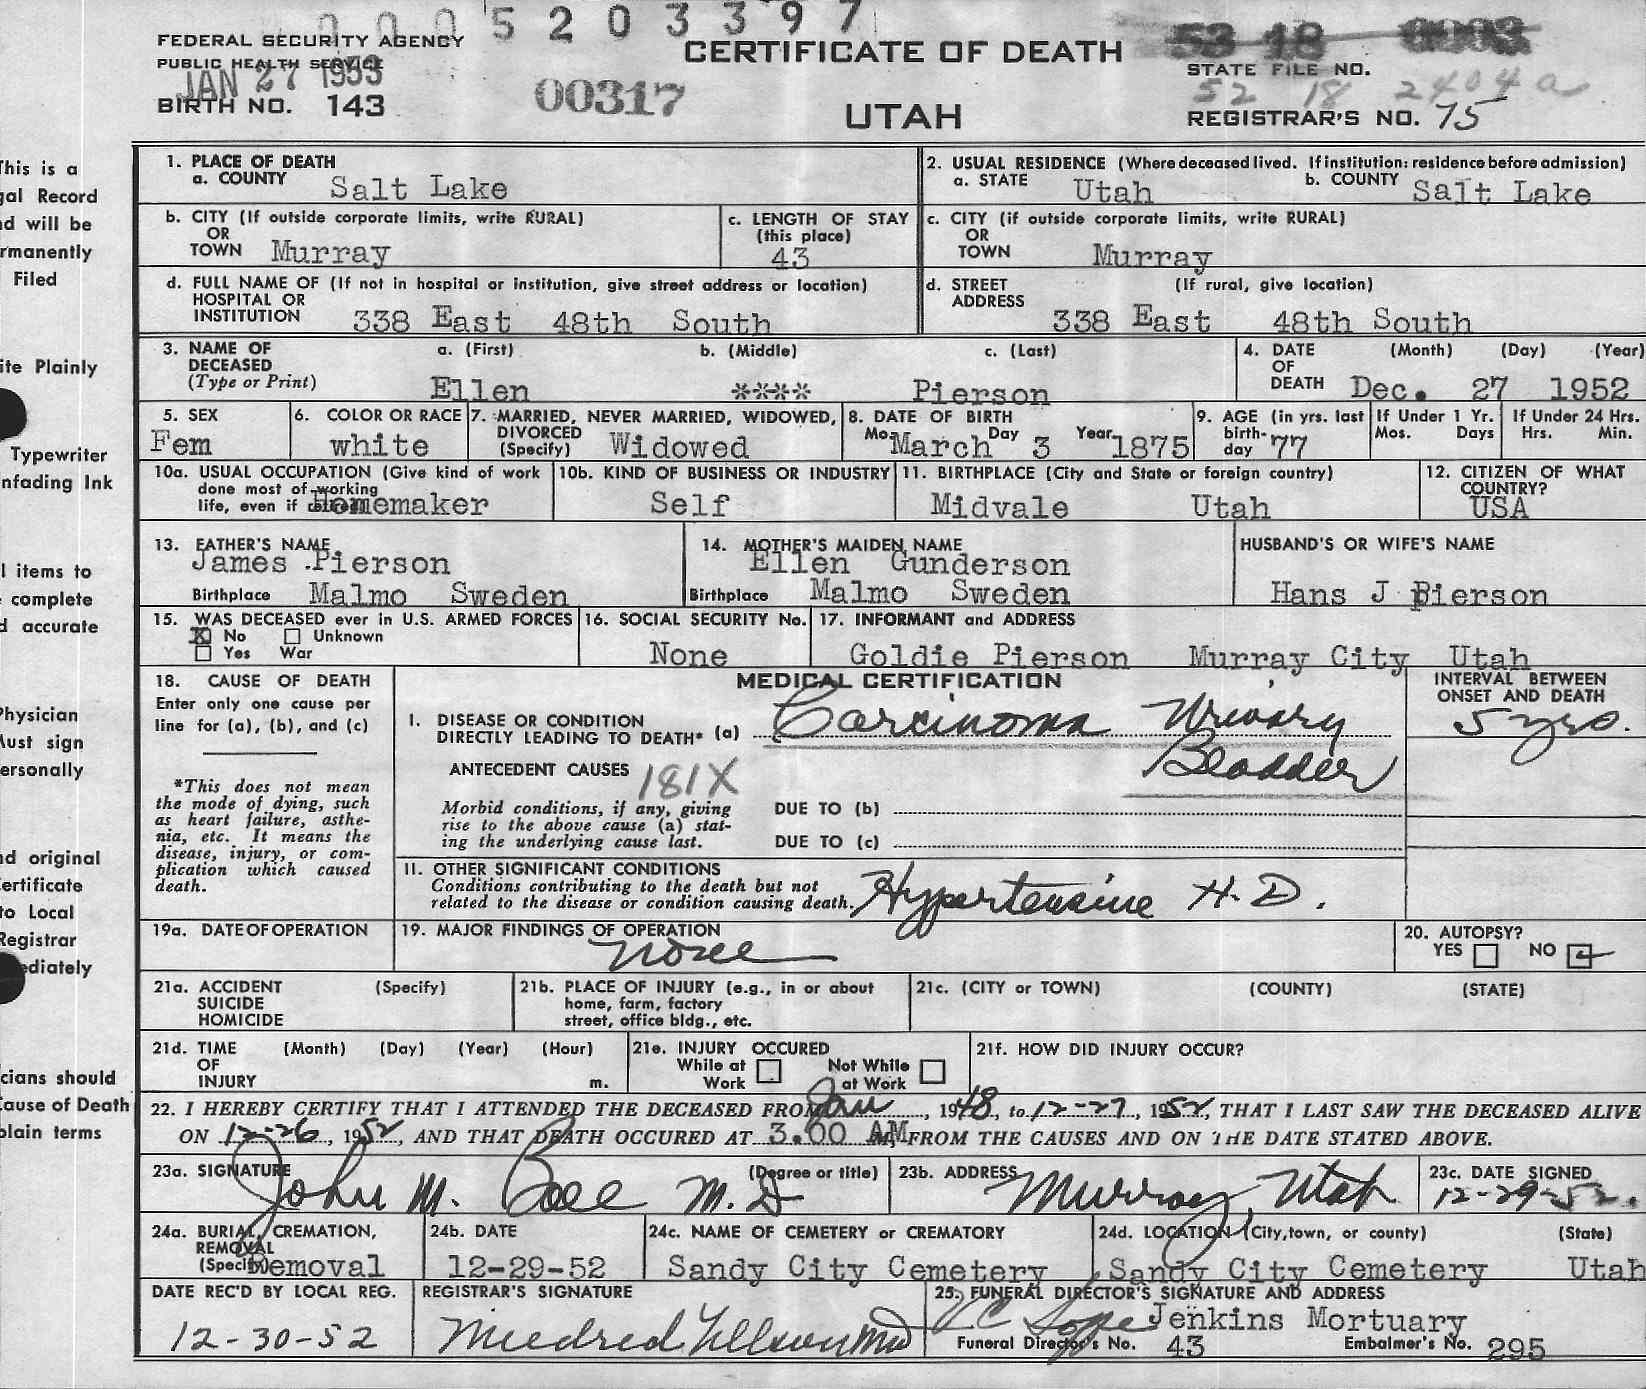 0005203397
FEDERAL SECURITY AGENCY
PUBLIC HEALTH SERVICE
JAN 27 1953
BIRTH NO. 143
00317
CERTIFICATE OF DEATH
UTAH
53 18 0003
STATE FILE NO.
52 18 2404a
REGISTRAR'S NO. 75
This is a
gal Record
nd will be
rmanently
Filed
ite Plainly
Typewriter
nfading Ink
l items to
complete
d accurate
Physician
Must sign
ersonally
nd original
ertificate
to Local
Registrar
ediately
cians should
Cause of Death
plain terms
1. PLACE OF DEATH
a. COUNTY Salt Lake
2. USUAL RESIDENCE (Where deceased lived. If institution: residence before admission)
a. STATE Utah b. COUNTY Salt Lake
b. CITY (If outside corporate limits, write RURAL)
OR
TOWN Murray
c. LENGTH OF STAY
(this place)
43
c. CITY (if outside corporate limits, write RURAL)
OR
TOWN Murray
d. FULL NAME OF (If not in hospital or institution, give street address or location)
HOSPITAL OR
INSTITUTION 338 East 48th South
d. STREET (If rural, give location)
ADDRESS
338 East 48th South
3. NAME OF a. (First) b. (Middle) c. (Last)
DECEASED
(Type or Print) Ellen **** Pierson
4. DATE (Month) (Day) (Year)
OF
DEATH Dec. 27 1952
5. SEX
Fem
6. COLOR OR RACE
white
7. MARRIED, NEVER MARRIED, WIDOWED,
DIVORCED
(Specify) Widowed
8. DATE OF BIRTH
Mo. March Day 3 Year 1875
9. AGE (in yrs. last
birth-
day 77
If Under 1 Yr.
Mos. Days
If Under 24 Hrs.
Hrs. Min.
10a. USUAL OCCUPATION (Give kind of work
done most of working
life, even if retired) Homemaker
10b. KIND OF BUSINESS OR INDUSTRY
Self
11. BIRTHPLACE (City and State or foreign country)
Midvale Utah
12. CITIZEN OF WHAT
COUNTRY?
USA
13. FATHER'S NAME
James Pierson
Birthplace Malmo Sweden
14. MOTHER'S MAIDEN NAME
Ellen Gunderson
Birthplace Malmo Sweden
HUSBAND'S OR WIFE'S NAME
Hans J Pierson
15. WAS DECEASED ever in U.S. ARMED FORCES
X No Unknown
Yes War
16. SOCIAL SECURITY No.
None
17. INFORMANT and ADDRESS
Goldie Pierson Murray City Utah
18. CAUSE OF DEATH
Enter only one cause per
line for (a), (b), and (c)
*This does not mean
the mode of dying, such
as heart failure, asthe-
nia, etc. It means the
disease, injury, or com-
plication which caused
death.
MEDICAL CERTIFICATION
I. DISEASE OR CONDITION
DIRECTLY LEADING TO DEATH* (a) Carcinoma Urinary
Bladder
ANTECEDENT CAUSES 181X
Morbid conditions, if any, giving
rise to the above cause (a) stat-
ing the underlying cause last.
DUE TO (b)
DUE TO (c)
II. OTHER SIGNIFICANT CONDITIONS
Conditions contributing to the death but not
related to the disease or condition causing death. Hypertensive H.D.
INTERVAL BETWEEN
ONSET AND DEATH
5 yrs.
19a. DATE OF OPERATION
19. MAJOR FINDINGS OF OPERATION
None
20. AUTOPSY?
YES NO
21a. ACCIDENT (Specify)
SUICIDE
HOMICIDE
21b. PLACE OF INJURY (e.g., in or about
home, farm, factory
street, office bldg., etc.
21c. (CITY or TOWN) (COUNTY) (STATE)
21d. TIME (Month) (Day) (Year) (Hour)
OF
INJURY m.
21e. INJURY OCCURED
While at Not While
Work at Work
21f. HOW DID INJURY OCCUR?
22. I HEREBY CERTIFY THAT I ATTENDED THE DECEASED FROM Jan, 1948, to 12-27, 1952, THAT I LAST SAW THE DECEASED ALIVE
ON 12-26, 1952, AND THAT DEATH OCCURED AT 3.00 AM, FROM THE CAUSES AND ON THE DATE STATED ABOVE.
23a. SIGNATURE (Degree or title)
John M. M.D
23b. ADDRESS
Murray, Utah
23c. DATE SIGNED
12-29-52.
24a. BURIAL, CREMATION,
REMOVAL
(Specify) Removal
24b. DATE
12-29-52
24c. NAME OF CEMETERY or CREMATORY
Sandy City Cemetery
24d. LOCATION (City, town, or county) (State)
Sandy City Cemetery Utah
DATE REC'D BY LOCAL REG.
12-30-52
REGISTRAR'S SIGNATURE
25. FUNERAL DIRECTOR'S SIGNATURE AND ADDRESS
Jenkins Mortuary
Funeral Director's No. 43 Embalmer's No. 295